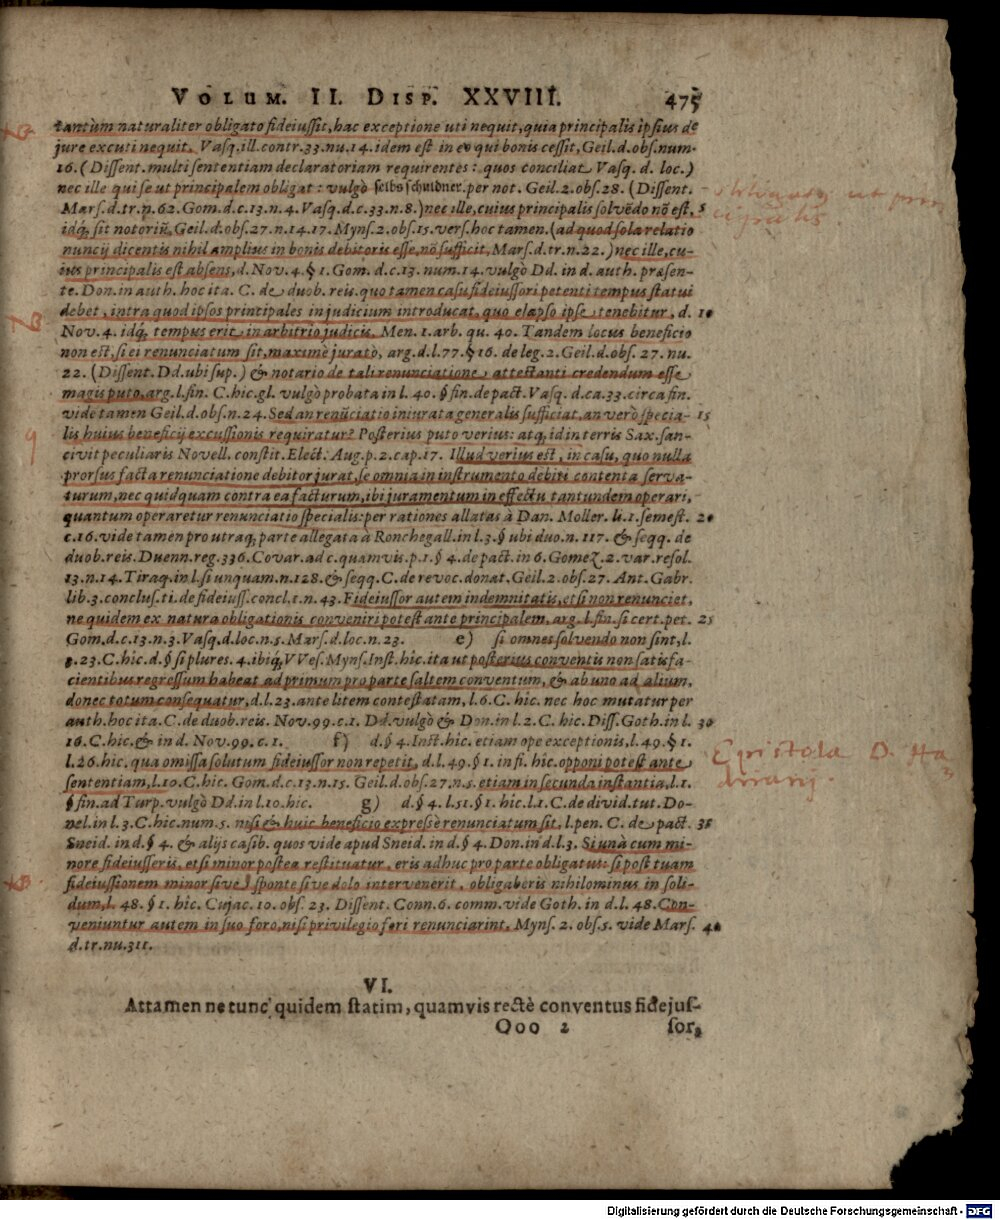 VOLUM. II. DISP. XXVIII. 475
tantùm naturaliter obligato fideiussit, hac exceptione uti nequit, quia principalis ipsius de
jure excuti nequit. Vasq. ill. contr. 33. nu. 14. idem est in eo qui bonis cessit, Geil. d. obs. num.
16. (Dissent. multi sententiam declaratoriam requirentes: quos conciliat Vasq. d. loc.)
nec ille qui se ut principalem obligat: vulgò selbs schuldner. per not. Geil. 2. obs. 28. (Dissent.
Mars. d. tr. n. 62. Gom. d. c. 13. n. 4. Vasq. d. c. 33. n. 8.) nec ille, cuius principalis solvēdo nō est, 5
idq́; sit notoriū, Geil. d. obs. 27. n. 14. 17. Myns. 2. obs. 15. vers. hoc tamen. (ad quod sola relatio
nuncij dicentis nihil amplius in bonis debitoris esse, nō sufficit, Mars. d. tr. n. 22.) nec ille, cu-
ius principalis est absens, d. Nov. 4. § 1. Gom. d. c. 13. num. 14. vulgò Dd. in d. auth. præsen-
te. Don. in auth. hoc ita. C. de duob. reis. quo tamen casu fideiussori petenti tempus statui
debet, intra quod ipsos principales in judicium introducat, quo elapso ipse tenebitur, d. 10
Nov. 4. idq́; tempus erit in arbitrio judicis, Men. 1. arb. qu. 40. Tandem locus beneficio
non est, si ei renunciatum sit, maximè jurato, arg. d. l. 77. § 16. de leg. 2. Geil. d. obs. 27. nu.
22. (Dissent. Dd. ubi sup.) & notario de tali renunciatione attestanti credendum esse
magis puto, arg. l. fin. C. hic. gl. vulgò probata in l. 40. § fin. de pact. Vasq. d. ca. 33. circa fin.
vide tamen Geil. d. obs. n. 24. Sed an renūciatio iniurata generalis sufficiat, an verò specia- 15
lis huius beneficij excussionis requiratur? Posterius puto verius: atq́; id in terris Sax. san-
civit peculiaris Novell. constit. Elect. Aug. p. 2. cap. 17. Illud verius est, in casu, quo nulla
prorsus facta renunciatione debitor jurat, se omnia in instrumento debiti contenta serva-
turum, nec quidquam contra ea facturum, ibi juramentum in effectu tantundem operari,
quantum operaretur renunciatio specialis: per rationes allatas à Dan. Moller. li. 1. semest. 20
c. 16. vide tamen pro utraq; parte allegata à Ronchegall. in l. 3. § ubi duo. n. 117. & seqq. de
duob. reis. Duenn. reg. 336. Covar. ad c. quamvis. p. 1. § 4. de pact. in 6. Gomez. 2. var. resol.
13. n. 14. Tiraq. in l. si unquam. n. 128. & seqq. C. de revoc. donat. Geil. 2. obs. 27. Ant. Gabr.
lib. 3. conclus. ti. de fideiuss. concl. 1. n. 43. Fideiussor autem indemnitatis, etsi non renunciet,
ne quidem ex natura obligationis conveniri potest ante principalem, arg. l. fin. si cert. pet. 25
Gom. d. c. 13. n. 3. Vasq. d. loc. n. 5. Mars. d. loc. n. 23. e) si omnes solvendo non sint, l.
23. C. hic. d. § si plures. 4. ibiq́; VVes. Myns. Inst. hic. ita ut posterius conventis non satisfa-
cientibus regressum habeat ad primum pro parte saltem conventum, & ab uno ad alium,
donec totum consequatur, d. l. 23. ante litem contestatam, l. 6. C. hic. nec hoc mutatur per
auth. hoc ita. C. de duob. reis. Nov. 99. c. 1. Dd. vulgò & Don. in l. 2. C. hic. Diss. Goth. in l. 30
16. C. hic. & in d. Nov. 99. c. 1. f) d. § 4. Inst. hic. etiam ope exceptionis, l. 49. § 1.
l. 26. hic. qua omissa solutum fideiussor non repetit, d. l. 49. § 1. in fi. hic. opponi potest ante
sententiam, l. 10. C. hic. Gom. d. c. 13. n. 15. Geil. d. obs. 27. n. 5. etiam in secunda instantia, l. 1.
§ fin. ad Turp. vulgò Dd. in l. 10. hic. g) d. § 4. l. 51. § 1. hic. l. 1. C. de divid. tut. Do-
nel. in l. 3. C. hic. num. 5. nisi & huic beneficio expressè renunciatum sit, l. pen. C. de pact. 35
Sneid. in d. § 4. & alijs casib. quos vide apud Sneid. in d. § 4. Don. in d. l. 3. Si unà cum mi-
nore fideiusseris, etsi minor postea restituatur, eris adhuc pro parte obligatus: si post tuam
fideiussionem minor sive sponte sive dolo intervenerit, obligaberis nihilominus in soli-
dum, l. 48. § 1. hic. Cujac. 10. obs. 23. Dissent. Conn. 6. comm. vide Goth. in d. l. 48. Con-
veniuntur autem in suo foro, nisi privilegio fori renunciarint, Myns. 2. obs. 5. vide Mars. 40
d. tr. nu. 311.
VI.
Attamen ne tunc quidem statim, quamvis rectè conventus fidejus-
Ooo 2 sor,
obligatus ut prin
cipalis
Epistola D. Ha
driani.
Digitalisierung gefördert durch die Deutsche Forschungsgemeinschaft - DFG